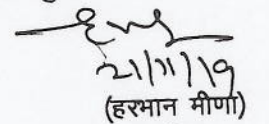 21/11/19
(हरभान मीणा)